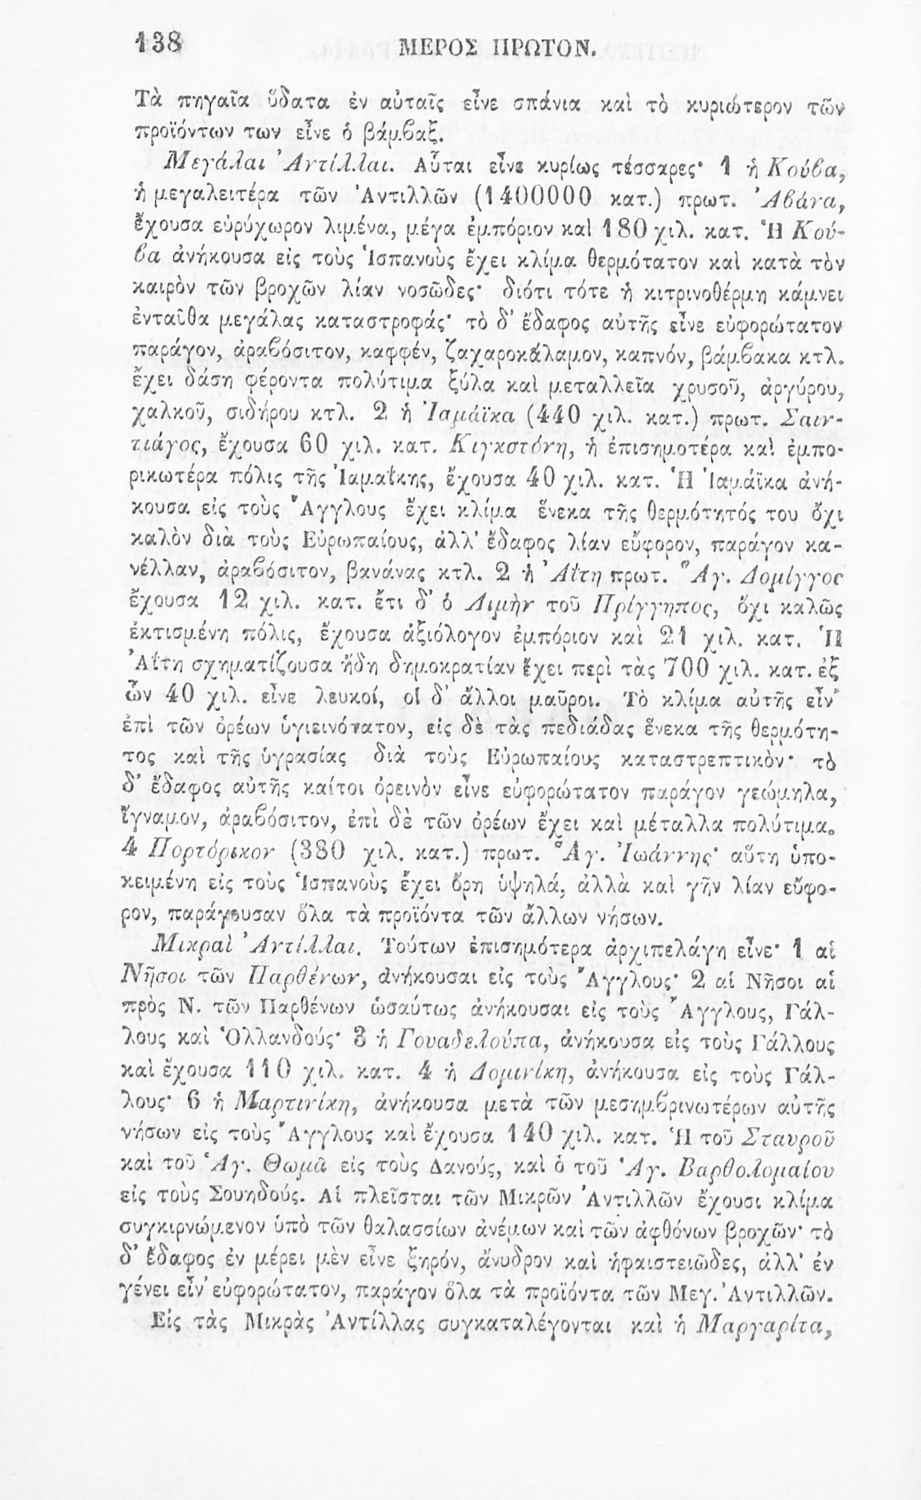 138 ΜΕΡΟΣ ΠΡΩΤΟΝ.
Τὰ πηγαῖα ὕδατα ἐν αὐταῖς εἶνε σπάνια καὶ τὸ κυριώτερον τῶν
προϊόντων των εἶνε ὁ βάμβαξ.
Μεγάλαι Ἀντίλλαι. Αὗται εἶνε κυρίως τέσσαρες· 1 ἡ Κούβα,
ἡ μεγαλειτέρα τῶν Ἀντιλλῶν (1400000 κατ.) πρωτ. Ἀβάνα,
ἔχουσα εὐρύχωρον λιμένα, μέγα ἐμπόριον καὶ 180 χιλ. κατ. Ἡ Κού-
βα ἀνήκουσα εἰς τοὺς Ἱσπανοὺς ἔχει κλίμα θερμότατον καὶ κατὰ τὸν
καιρὸν τῶν βροχῶν λίαν νοσῶδες· διότι τότε ἡ κιτρινοθέρμη κάμνει
ἐνταῦθα μεγάλας καταστροφάς· τὸ δ' ἔδαφος αὐτῆς εἶνε εὐφορώτατον
παράγον, ἀραβόσιτον, καφφέν, ζαχαροκάλαμον, καπνόν, βάμβακα κτλ.
ἔχει δάση φέροντα πολύτιμα ξύλα καὶ μεταλλεῖα χρυσοῦ, ἀργύρου,
χαλκοῦ, σιδήρου κτλ. 2 ἡ Ἰαμάϊκα (440 χιλ. κατ.) πρωτ. Σαιν-
τιάγος, ἔχουσα 60 χιλ. κατ. Κιγκστόνη, ἡ ἐπισημοτέρα καὶ ἐμπο-
ρικωτέρα πόλις τῆς Ἰαμαΐκης, ἔχουσα 40 χιλ. κατ. Ἡ Ἰαμάϊκα ἀνή-
κουσα εἰς τοὺς Ἄγγλους ἔχει κλίμα ἕνεκα τῆς θερμότητός του ὄχι
καλὸν διὰ τοὺς Εὐρωπαίους, ἀλλ' ἔδαφος λίαν εὔφορον, παράγον κα-
νέλλαν, ἀραβόσιτον, βανάνας κτλ. 2 ἡ Ἀΐτη πρωτ. Ἅγ. Δομίγγος
ἔχουσα 12 χιλ. κατ. ἔτι δ' ὁ Λιμὴν τοῦ Πρίγγηπος, ὄχι καλῶς
ἐκτισμένη πόλις, ἔχουσα ἀξιόλογον ἐμπόριον καὶ 21 χιλ. κατ. Ἡ
Ἀΐτη σχηματίζουσα ἤδη δημοκρατίαν ἔχει περὶ τὰς 700 χιλ. κατ. ἐξ
ὧν 40 χιλ. εἶνε λευκοί, οἱ δ' ἄλλοι μαῦροι. Τὸ κλίμα αὐτῆς εἶν'
ἐπὶ τῶν ὀρέων ὑγιεινότατον, εἰς δὲ τὰς πεδιάδας ἕνεκα τῆς θερμότη-
τος καὶ τῆς ὑγρασίας διὰ τοὺς Εὐρωπαίους καταστρεπτικὸν· τὸ
δ' ἔδαφος αὐτῆς καίτοι ὀρεινὸν εἶνε εὐφορώτατον παράγον γεώμηλα,
ἴγναμον, ἀραβόσιτον, ἐπὶ δὲ τῶν ὀρέων ἔχει καὶ μέταλλα πολύτιμα.
4 Πορτόρικον (380 χιλ. κατ.) πρωτ. Ἅγ. Ἰωάννης· αὕτη ὑπο-
κειμένη εἰς τοὺς Ἱσπανοὺς ἔχει ὄρη ὑψηλά, ἀλλὰ καὶ γῆν λίαν εὔφο-
ρον, παράγουσαν ὅλα τὰ προϊόντα τῶν ἄλλων νήσων.
Μικραὶ Ἀντίλλαι. Τούτων ἐπισημότερα ἀρχιπελάγη εἶνε· 1 αἱ
Νῆσοι τῶν Παρθένων, ἀνήκουσαι εἰς τοὺς Ἄγγλους· 2 αἱ Νῆσοι αἱ
πρὸς Ν. τῶν Παρθένων ὡσαύτως ἀνήκουσαι εἰς τοὺς Ἄγγλους, Γάλ-
λους καὶ Ὁλλανδούς· 3 ἡ Γουαδελούπα, ἀνήκουσα εἰς τοὺς Γάλλους
καὶ ἔχουσα 110 χιλ. κατ. 4 ἡ Δομινίκη, ἀνήκουσα εἰς τοὺς Γάλ-
λους· 6 ἡ Μαρτινίκη, ἀνήκουσα μετὰ τῶν μεσημβρινωτέρων αὐτῆς
νήσων εἰς τοὺς Ἄγγλους καὶ ἔχουσα 140 χιλ. κατ. Ἡ τοῦ Σταυροῦ
καὶ τοῦ Ἁγ. Θωμᾶ εἰς τοὺς Δανούς, καὶ ὁ τοῦ Ἁγ. Βαρθολομαίου
εἰς τοὺς Σουηδούς. Αἱ πλεῖσται τῶν Μικρῶν Ἀντιλλῶν ἔχουσι κλίμα
συγκιρνώμενον ὑπὸ τῶν θαλασσίων ἀνέμων καὶ τῶν ἀφθόνων βροχῶν· τὸ
δ' ἔδαφος ἐν μέρει μὲν εἶνε ξηρόν, ἄνυδρον καὶ ἡφαιστειῶδες, ἀλλ' ἐν
γένει εἶν' εὐφορώτατον, παράγον ὅλα τὰ προϊόντα τῶν Μεγ. Ἀντιλλῶν.
Εἰς τὰς Μικρὰς Ἀντίλλας συγκαταλέγονται καὶ ἡ Μαργαρίτα,